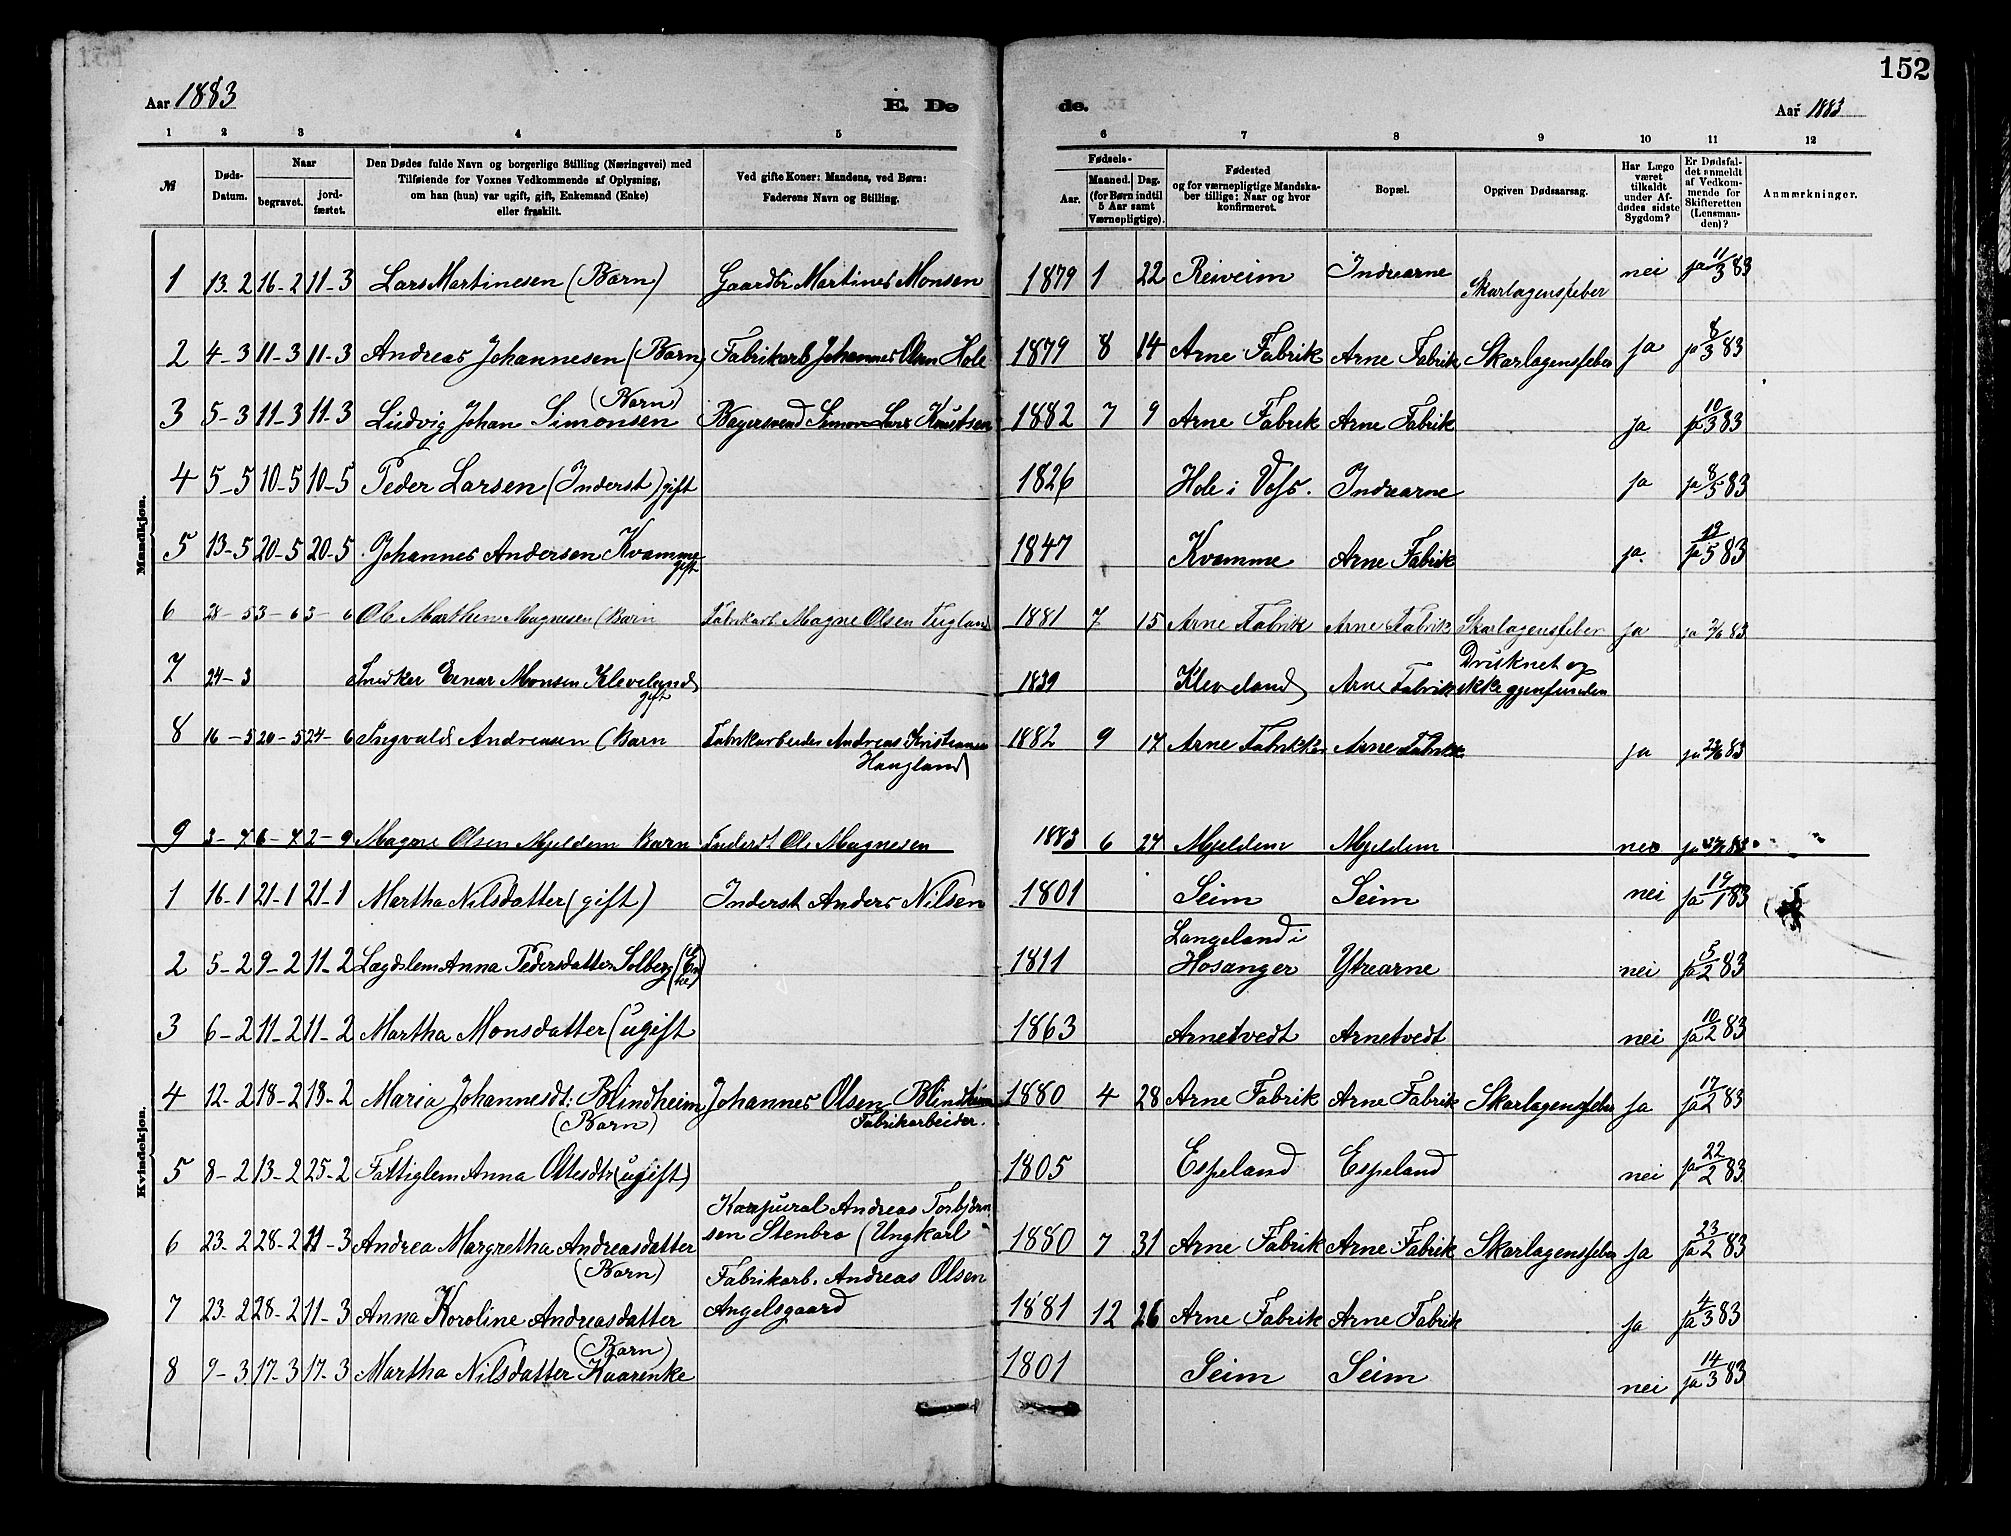 152
Aar 1883 E. Dø de. Aar 1883
1 2 3 4 5 6 7 8 9 10 11 12
№
Døds-Datum.
Naar
begravet.
jordfæstet.
Den Dødes fulde Navn og borgerlige Stilling (Næringsvei) med
Tilføiende for Voxnes Vedkommende af Oplysning,
om han (hun) var ugift, gift, Enkemand (Enke)
eller fraskilt.
Ved gifte Koner: Mandens, ved Børn:
Faderens Navn og Stilling.
Fødsels-
Aar.
Maaned. Dag.
(for Børn indtil
5 Aar samt
Værnepligtige).
Fødested
og for værnepligtige Mandska-
ber tillige: Naar og hvor
konfirmeret.
Bopæl.
Opgiven Dødsaarsag.
Har Læge
været
tilkaldt
under Af-
dødes sidste
Sygdom?
Er Dødsfal-
det anmeldt
af Vedkom-
mende for
Skifteretten
(Lensman-
den)?
Anmærkninger.
Mandkjøn.
1 13-2 16-2 11-3 Lars Martinesen (Barn) Gaardbr Martines Monsen 1879 1 22 Reiveim Indrearne Skarlagensfeber nei ja 11/3 83
2 4-3 11-3 11-3 Andreas Johannesen (Barn) Fabrikarb Johannes Olsen Hole 1879 8 14 Arne Fabrik Arne Fabrik Skarlagensfeber ja ja 8/3 83
3 5-3 11-3 11-3 Ludvig Johan Simonsen (Barn) Bagersvend Simon Lars Knutsen 1882 7 9 Arne Fabrik Arne Fabrik ja ja 10/3 83
4 5-5 10-5 10-5 Peder Larsen (Inderst) gift 1826 Hole i Vofs. Indrearne ja ja 8/5 83
5 13-5 20-5 20-5 Johannes Andersen Kvamme gift 1847 Kvamme Arne Fabrik ja. ja 19/5 83
6 28-5 3-6 3-6 Ole Marthin Magnesen (Barn Fabrikarb. Magne Olsen 1881 7 15 Arne Fabrik Arne Fabrik Skarlagensfeber ja ja 2/6 83
7 24-3 Snedker Einar Monsen Kleveland gift 1839 Kleveland Arne Fabrik Drusknet og ikke gjenfunden
8 16-5 20-5 24-6 Ingvald Andreasen (Barn Fabrikarbeider Andreas Kristiansen Haugland 1882 9 17 Arne Fabrikk Arne Fabrik ja ja 83
9 3-7 6-7 2-9 Magne Olsen Mjeldem Barn Inderst Ole Magnesen 1883 6 24 Mjeldem Mjeldem nei ja 83
Kvindekjøn.
1 16-1 21-1 21-1 Martha Nilsdatter (gift) Inderst Anders Nilsen 1801 Seim Seim nei ja 19/1 83
2 5-2 9-2 11-2 Lægdslem Anna Pedersdatter Solberg (Enke) 1811 Langeland i Hosanger Ytrearne nei ja 5/2 83
3 6-2 11-2 11-2 Martha Monsdatter (ugift 1863 Arnetvedt Arnetvedt nei ja 10/2 83
4 12-2 18-2 18-2 Maria Johannesdt: Blindheim (Barn) Johannes Olsen Blindheim Fabrikarbeider. 1880 4 28 Arne Fabrik Arne Fabrik Skarlagensfeber ja ja 17/2 83
5 8-2 13-2 25-2 Fattiglem Anna Ottesdtr (ugift) 1805 Espeland Espeland nei ja 22/2 83
6 23-2 28-2 11-3 Andrea Margretha Andreasdatter (Barn) Korpural Andreas Torbjørnsen Stenbro (Ungkarl 1880 7 31 Arne Fabrik Arne Fabrik Skarlagensfeber ja ja 23/2 83
7 23-2 28-2 11-3 Anna Karoline Andreasdatter (Barn) Fabrikarb. Andreas Olsen Angelsgaard 1881 12 26 Arne Fabrik Arne Fabrik ja ja 4/3 83
8 9-3 17-3 17-3 Martha Nilsdatter Kaarenke 1801 Seim Seim nei ja 14/3 83